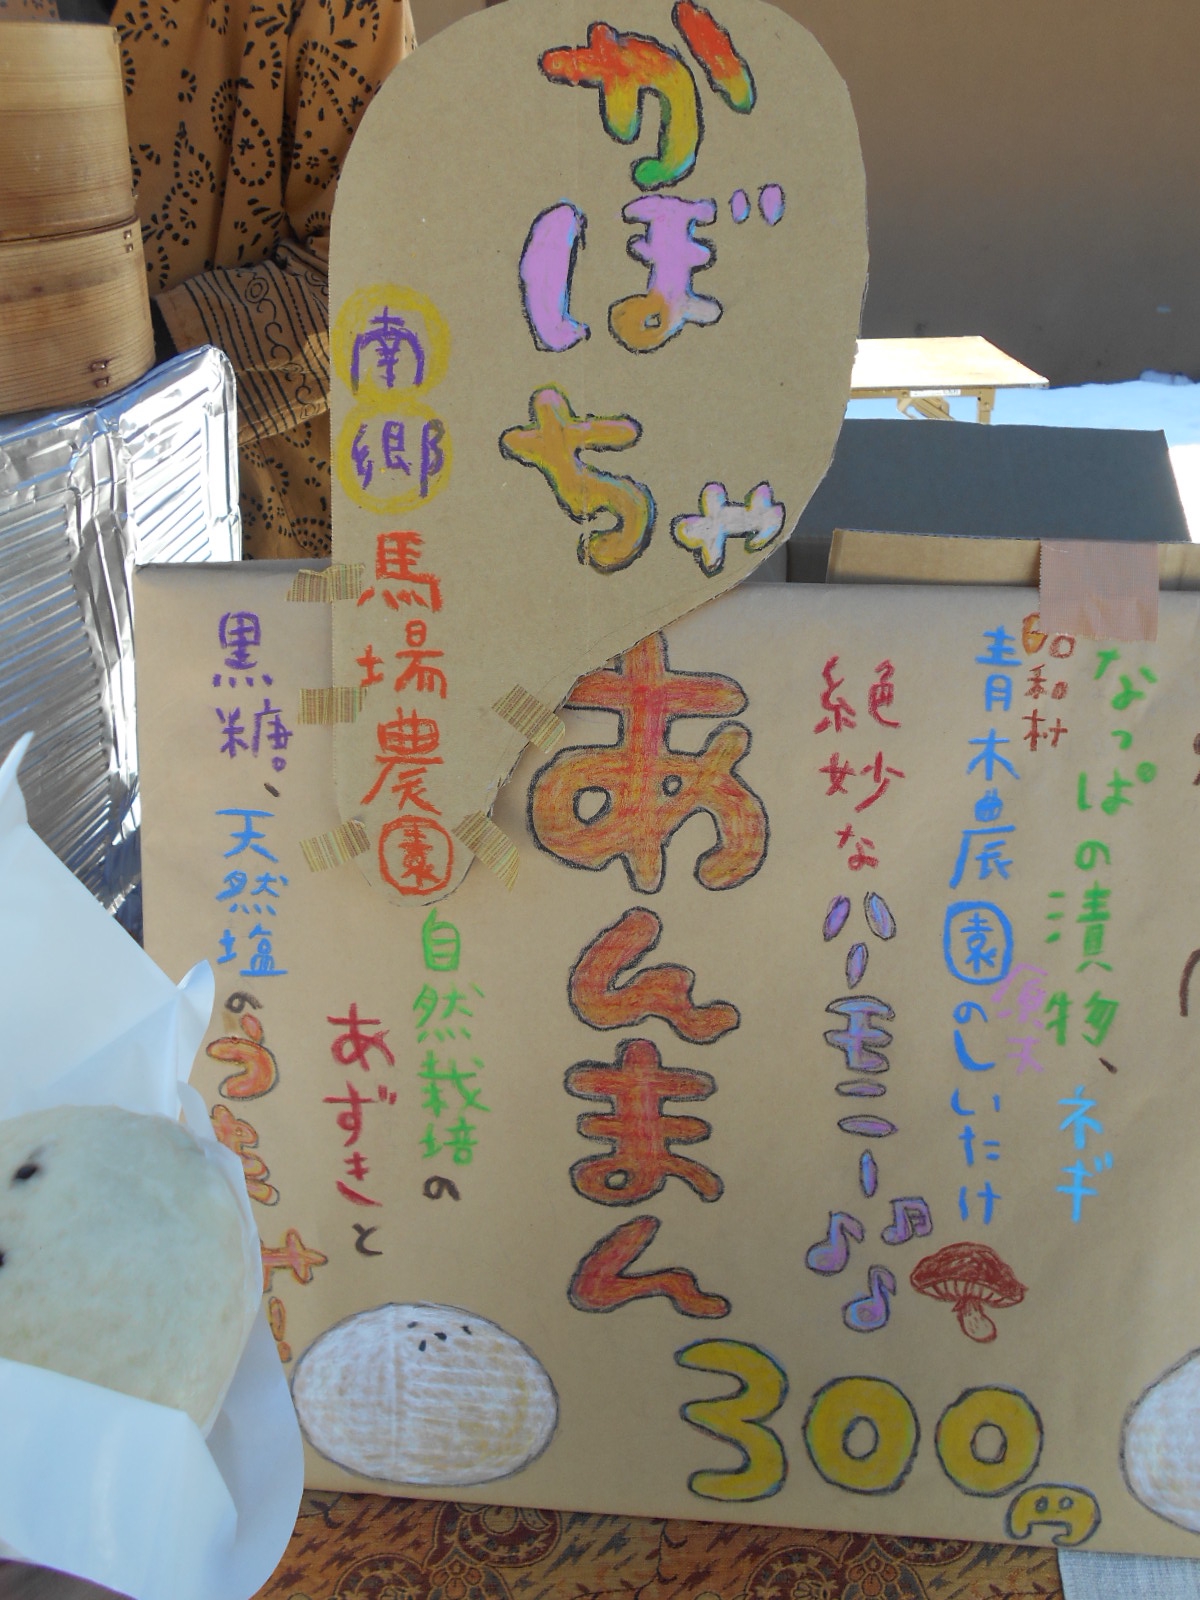 なっぱの漬物、ネギ
昭和村
青木農園のしいたけ
絶妙な
ハーモニー
かぼちゃ
あんまん
300円
南郷
馬場農園
自然栽培の
あずきと
黒糖。、天然塩の